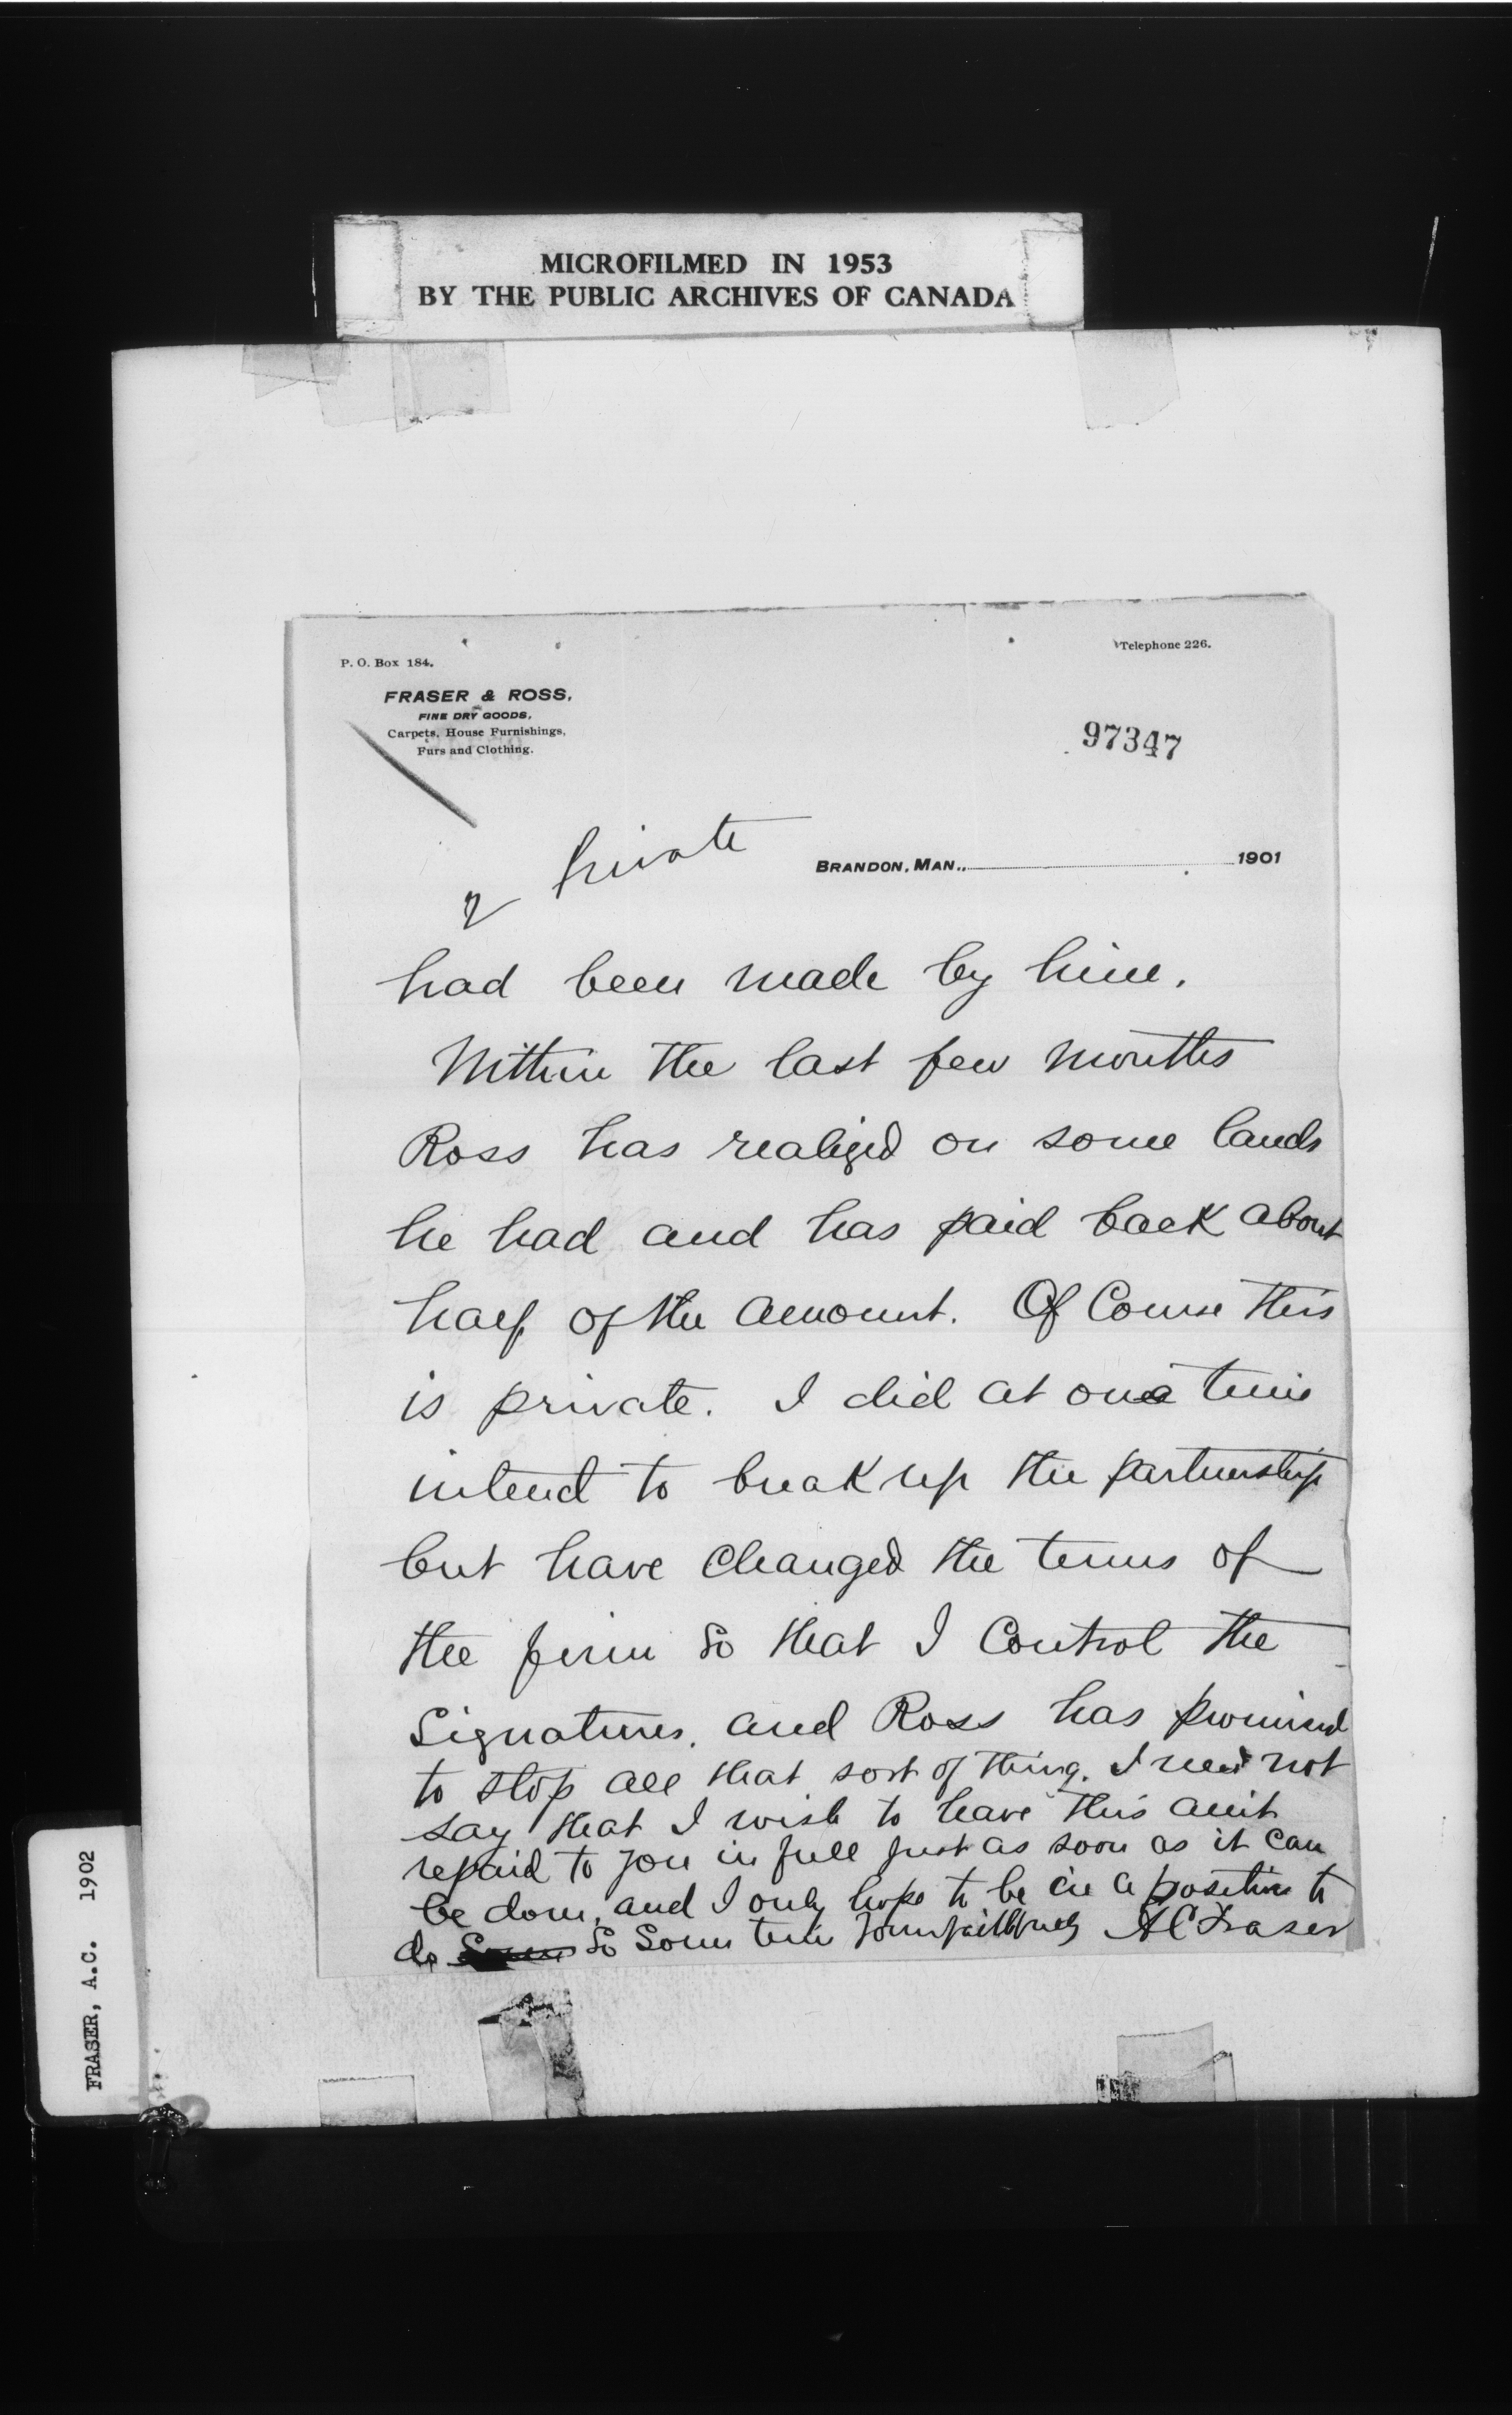 MICROFILMED IN 1953
BY THE PUBLIC ARCHIVES OF CANADA
P. O. Box 184.
Telephone 226.
FRASER & ROSS,
FINE DRY GOODS,
Carpets, House Furnishings,
Furs and Clothing.
97347
private
BRANDON, MAN., 1901
2
had been made by him.
Within the last few months
Ross has realized on some lands
he had and has paid back about
half of the amount. Of Course this
is private. I did at one time
intend to break up the partnership
but have changed the terms of
the firm so that I Control the
Signatures, and Ross has promised
to stop all that sort of thing. I need not
say that I wish to have this amt
repaid to you in full just as soon as it can
be done, and I only hope to be in a position to
do so some time Yours faithfully A C Fraser
FRASER, A.C. 1902